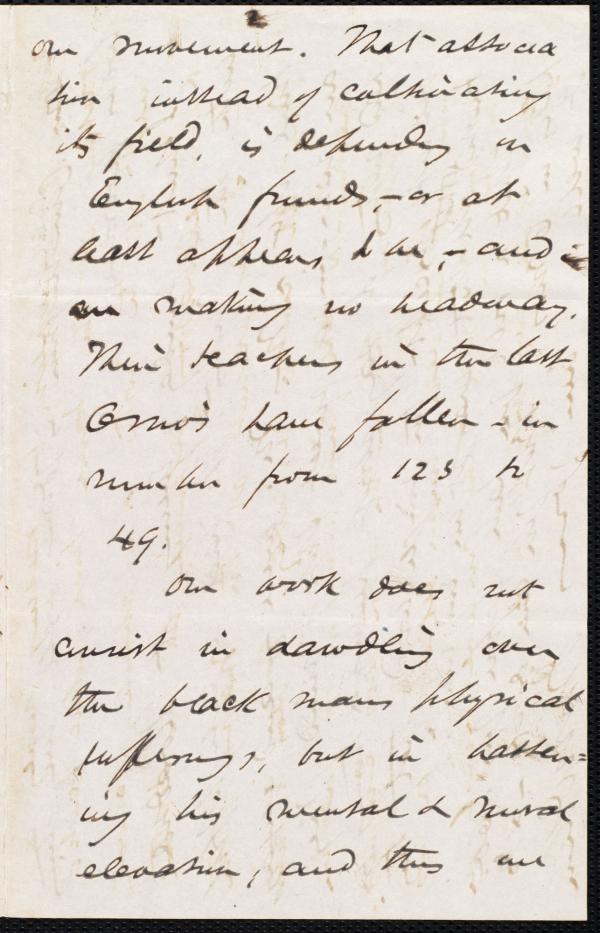 2
our movement. That associa
tion instead of cultivating
its field, is depending on
English funds, – or at
least appears to be, – and is
making no headway.
Their teachers in the last
6 mo's have fallen – in
number from 123 to
49.
Our work does not
consist in dawdling over
the black mans physical
sufferings, but in hasten=
ing his mental & moral
elevation, and thus